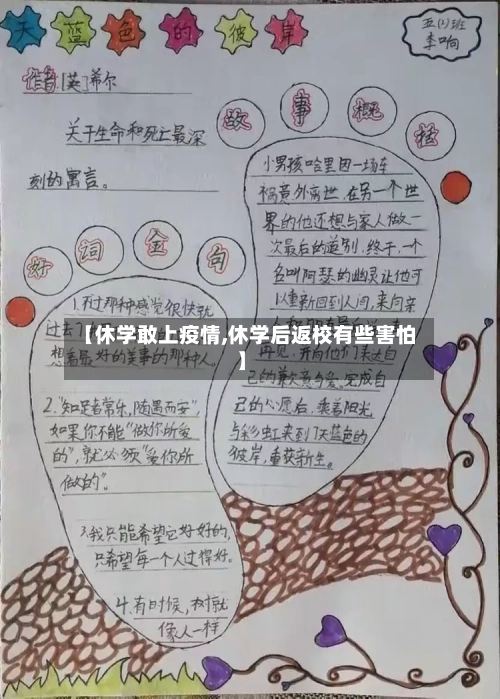 天蓝色的彼岸
五(1)班
李响
作者:[英]希尔
关于生命和死亡最深
刻的寓言。
故事概括
小男孩哈里因一场车
祸意外离世,在另一个世
界的他还想与家人做一
次最后的道别,终于,一个
名叫阿瑟的幽灵让他可
以重新回到人间,来向亲
再见,并向他们表达自
己的歉意与爱。完成自
己的心愿后,乘着阳光
与彩虹来到了天蓝色的
彼岸,重获新生。
好词金句
1.不过那种感觉很快就
过去了
想着最好的美事的那种人。
【休学敢上疫情,休学后返校有些害怕
】
2."知足者常乐,随遇而安",
如果你不能"做你所爱
的",就必须"爱你所
做的"。
3.我只能希望它好好的,
只希望每一个人过得好。
4.有时候,树就
像人一样